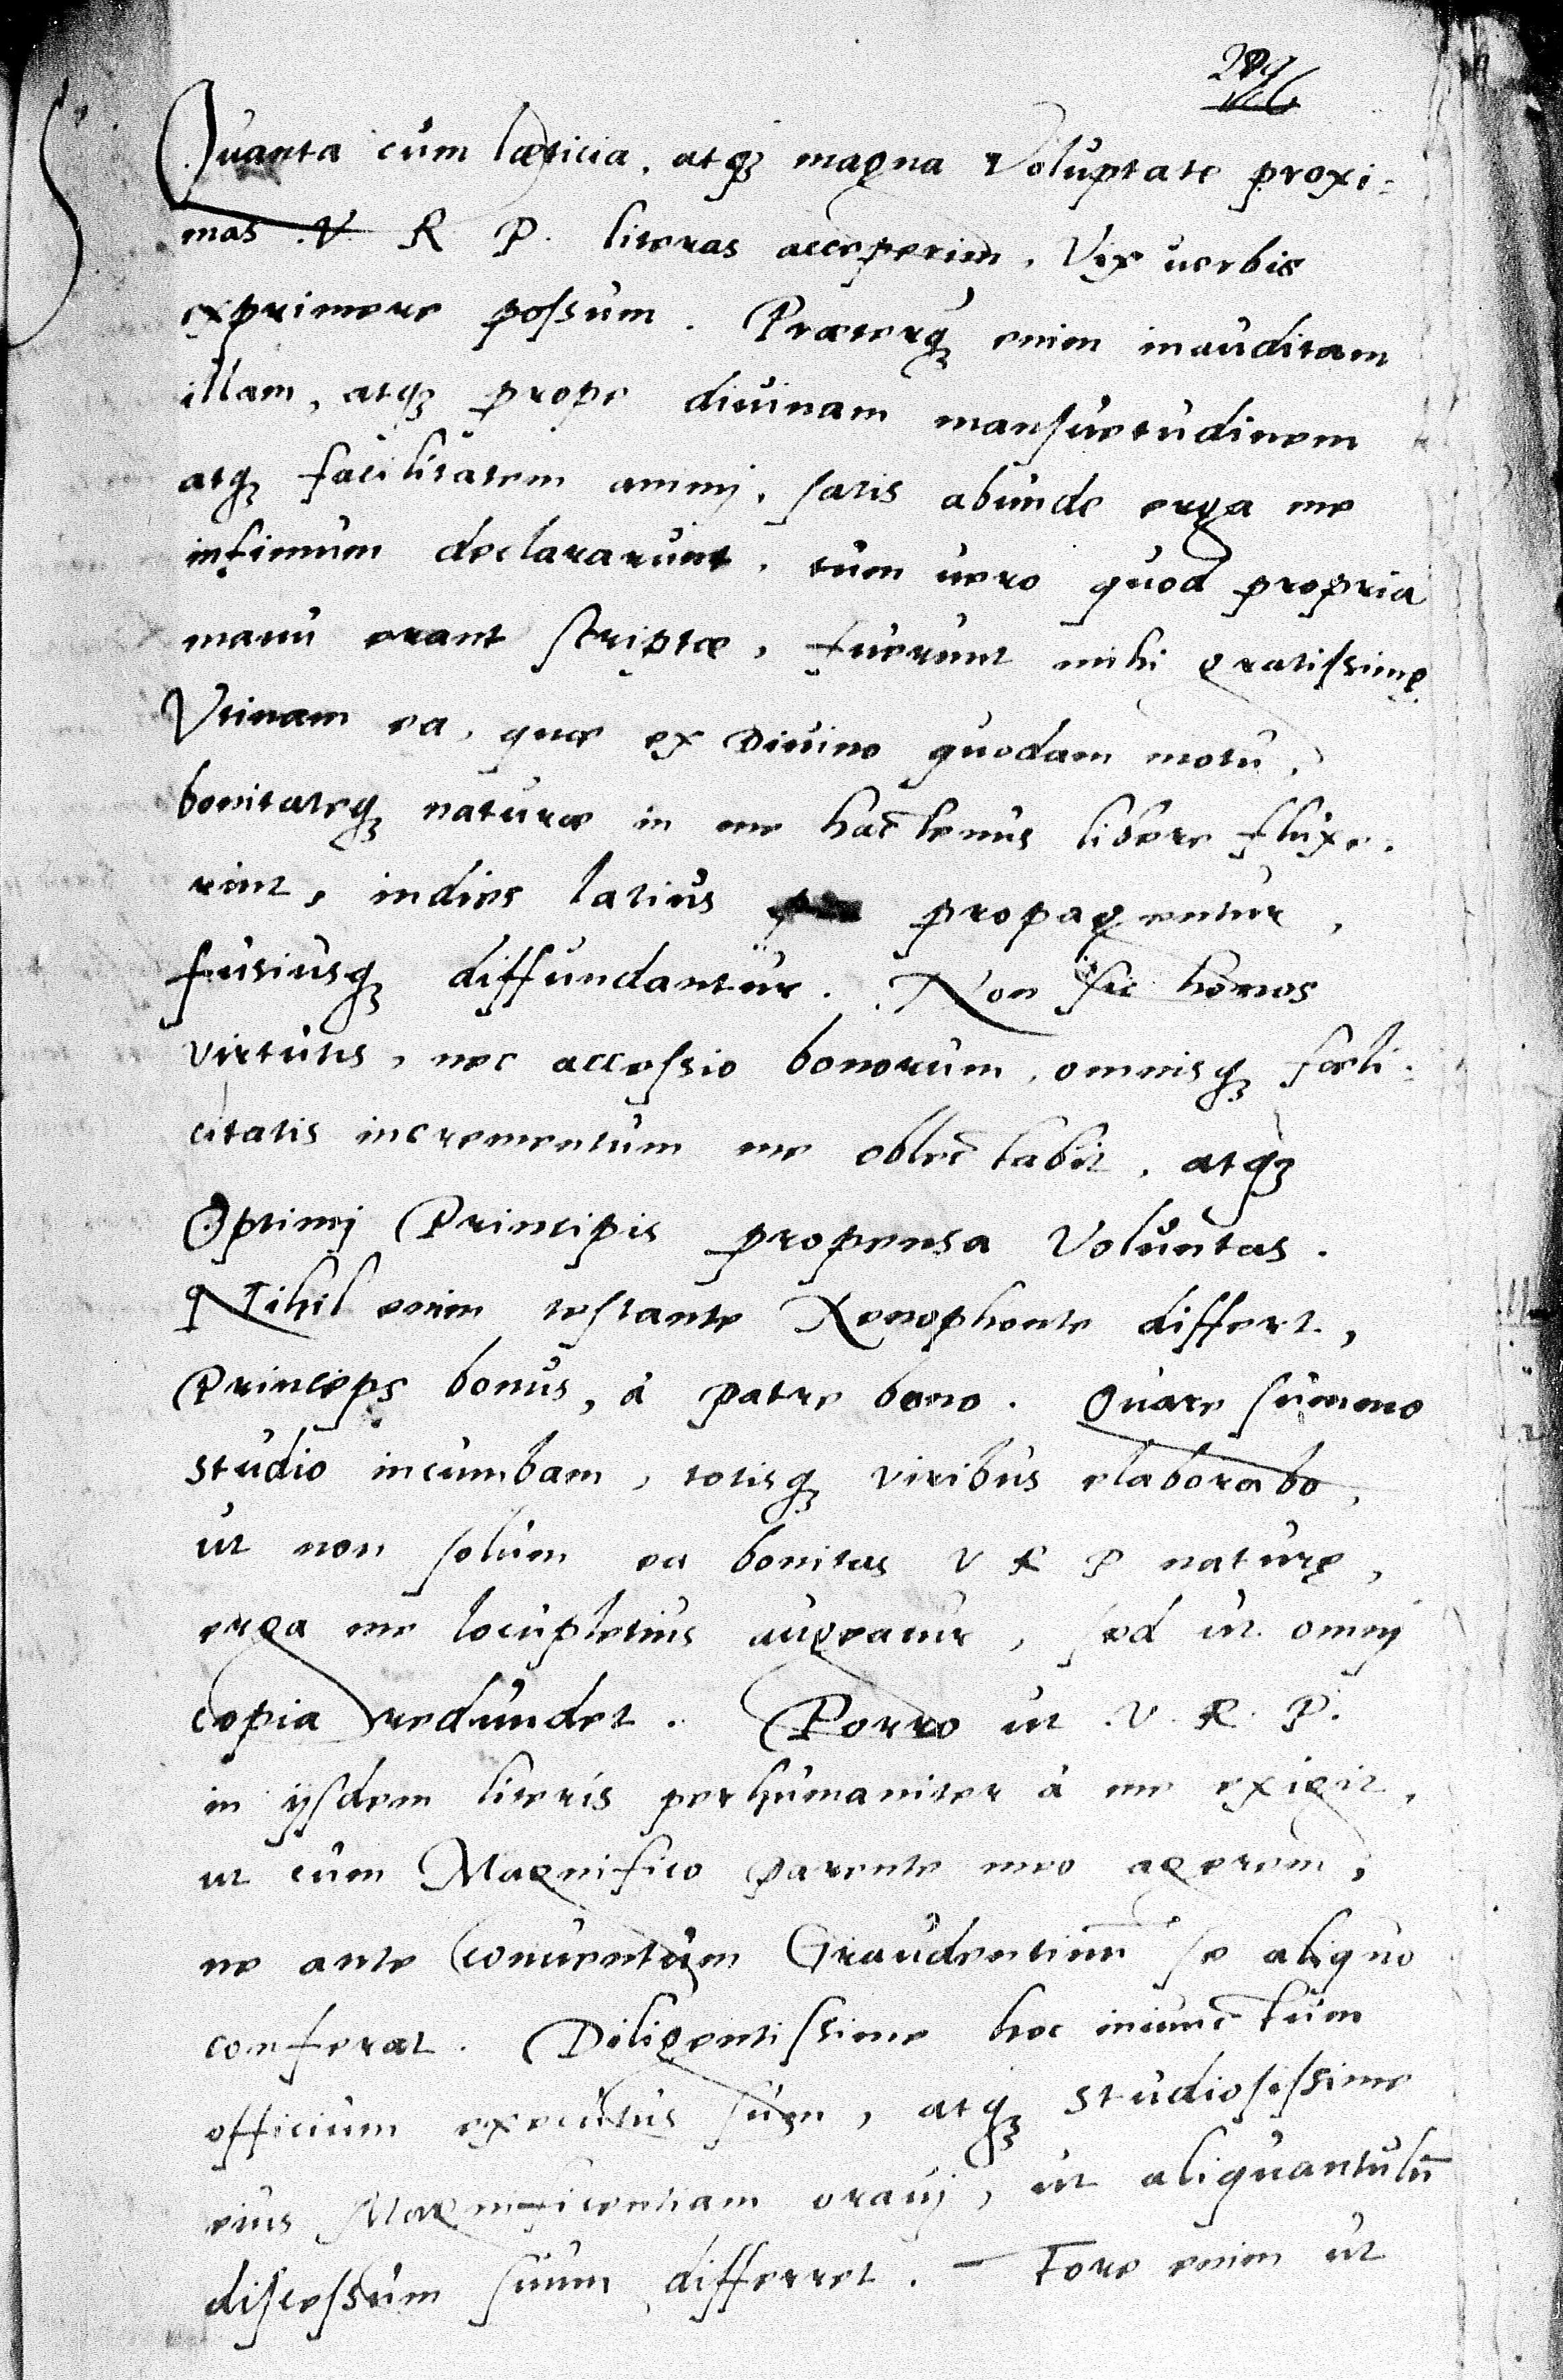 Quanta cum læticia, atqꝫ magna Voluptate proxi=
mas .V R P. literas acceperim, Vix uerbis
exprimere possum. Præterqꝫ enim inauditam
illam, atqꝫ prope diuinam mansuetudinem
atqꝫ facilitatem animj, satis abunde erga me
infimum declararunt, tum uero quod propria
manu erant scriptæ, fuerunt mihi gratissimę
Vtinam ea, quæ ex Diuino quodam motu,
bonitateqꝫ naturæ in me hactenus libere fluxe.
rint, indies latius propagentur,
fusiusqꝫ diffundantur. Non sic honos
virtutis, nec accessio bonorum, omnisqꝫ fœli.
citatis incrementum me oblectabit, atqꝫ
Optimj Principis propensa Voluntas.
Nihil enim testante Xenophonte differt,
Princeps bonus, à patre bono. Quare summo
studio incumbam, totisqꝫ viribus elaborabo,
ut non solum ea bonitas V R P naturę,
erga me locupletius augeatur, sed ut omnj
copia redundet. Porro ut .V. R. P.
in ijsdem literis perhumaniter à me exigit,
ut cum Magnifico parente meo agerem,
ne ante Conuentum Graudentinum se aliquo
conferat. Diligentissime hoc iniunctum
officium executus sum, atqꝫ studiosissime
eius Magnificentiam orauj, ut aliquantulū
discessum suum differret. Fore enim ut